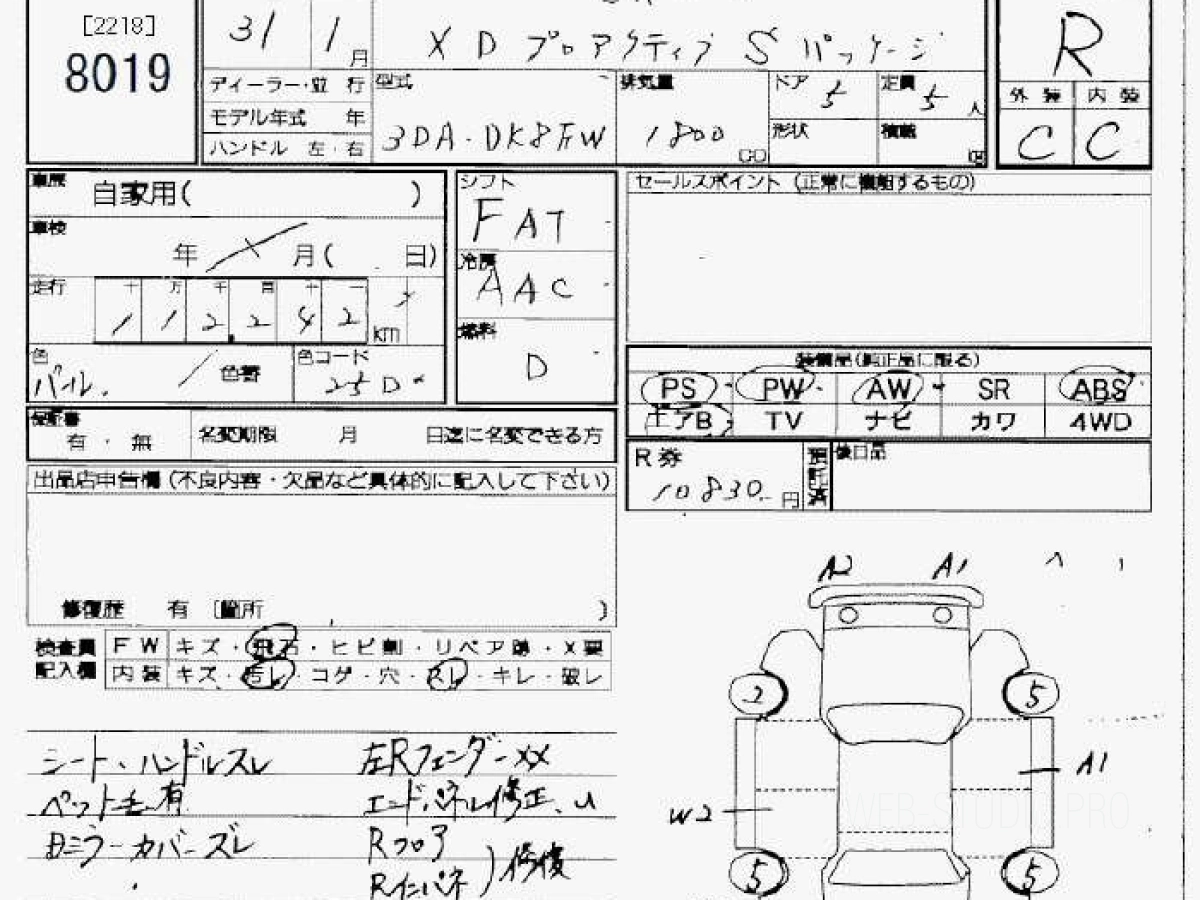 [2218]
8019
31 1 月
XD プロアクティブ Sパッケージ
R
ディーラー・並 行
モデル年式 年
ハンドル 左・右
型式
3DA-DK8FW
排気量
1800
CC
ドア
5
定員
5 人
形状
積載
kg
外装 内装
C C
車歴
自家用( )
車検
年 月( 日)
走行
十 万 千 百 十 一
1 1 2 2 4 2 km
色
パール.
色替
色コード
25D
シフト
FAT
冷房
AAC
燃料
D
セールスポイント (正常に機能するもの)
装備品(純正品に限る)
PS PW AW SR ABS
エアB TV ナビ カワ 4WD
保証書
有 ・ 無
名変期限 月 日迄に名変できる方
R券
10830 円
預託済
後日品
出品店申告欄 (不良内容・欠品など具体的に記入して下さい)
修復歴 有 〔箇所 )
検査員記入欄
FW キズ・飛石・ヒビ割・リペア跡・X要
内装 キズ・汚レ・コゲ・穴・スレ・キレ・破レ
シート、ハンドルスレ
ペット毛有
ミラーカバーズレ
左Rフェンダ-XX
エンドパネル修正、U
Rフロア
Rインパネ
修復
A2 A1
2 5
A1
W2
5 5
WEB-STUDIO.PRO